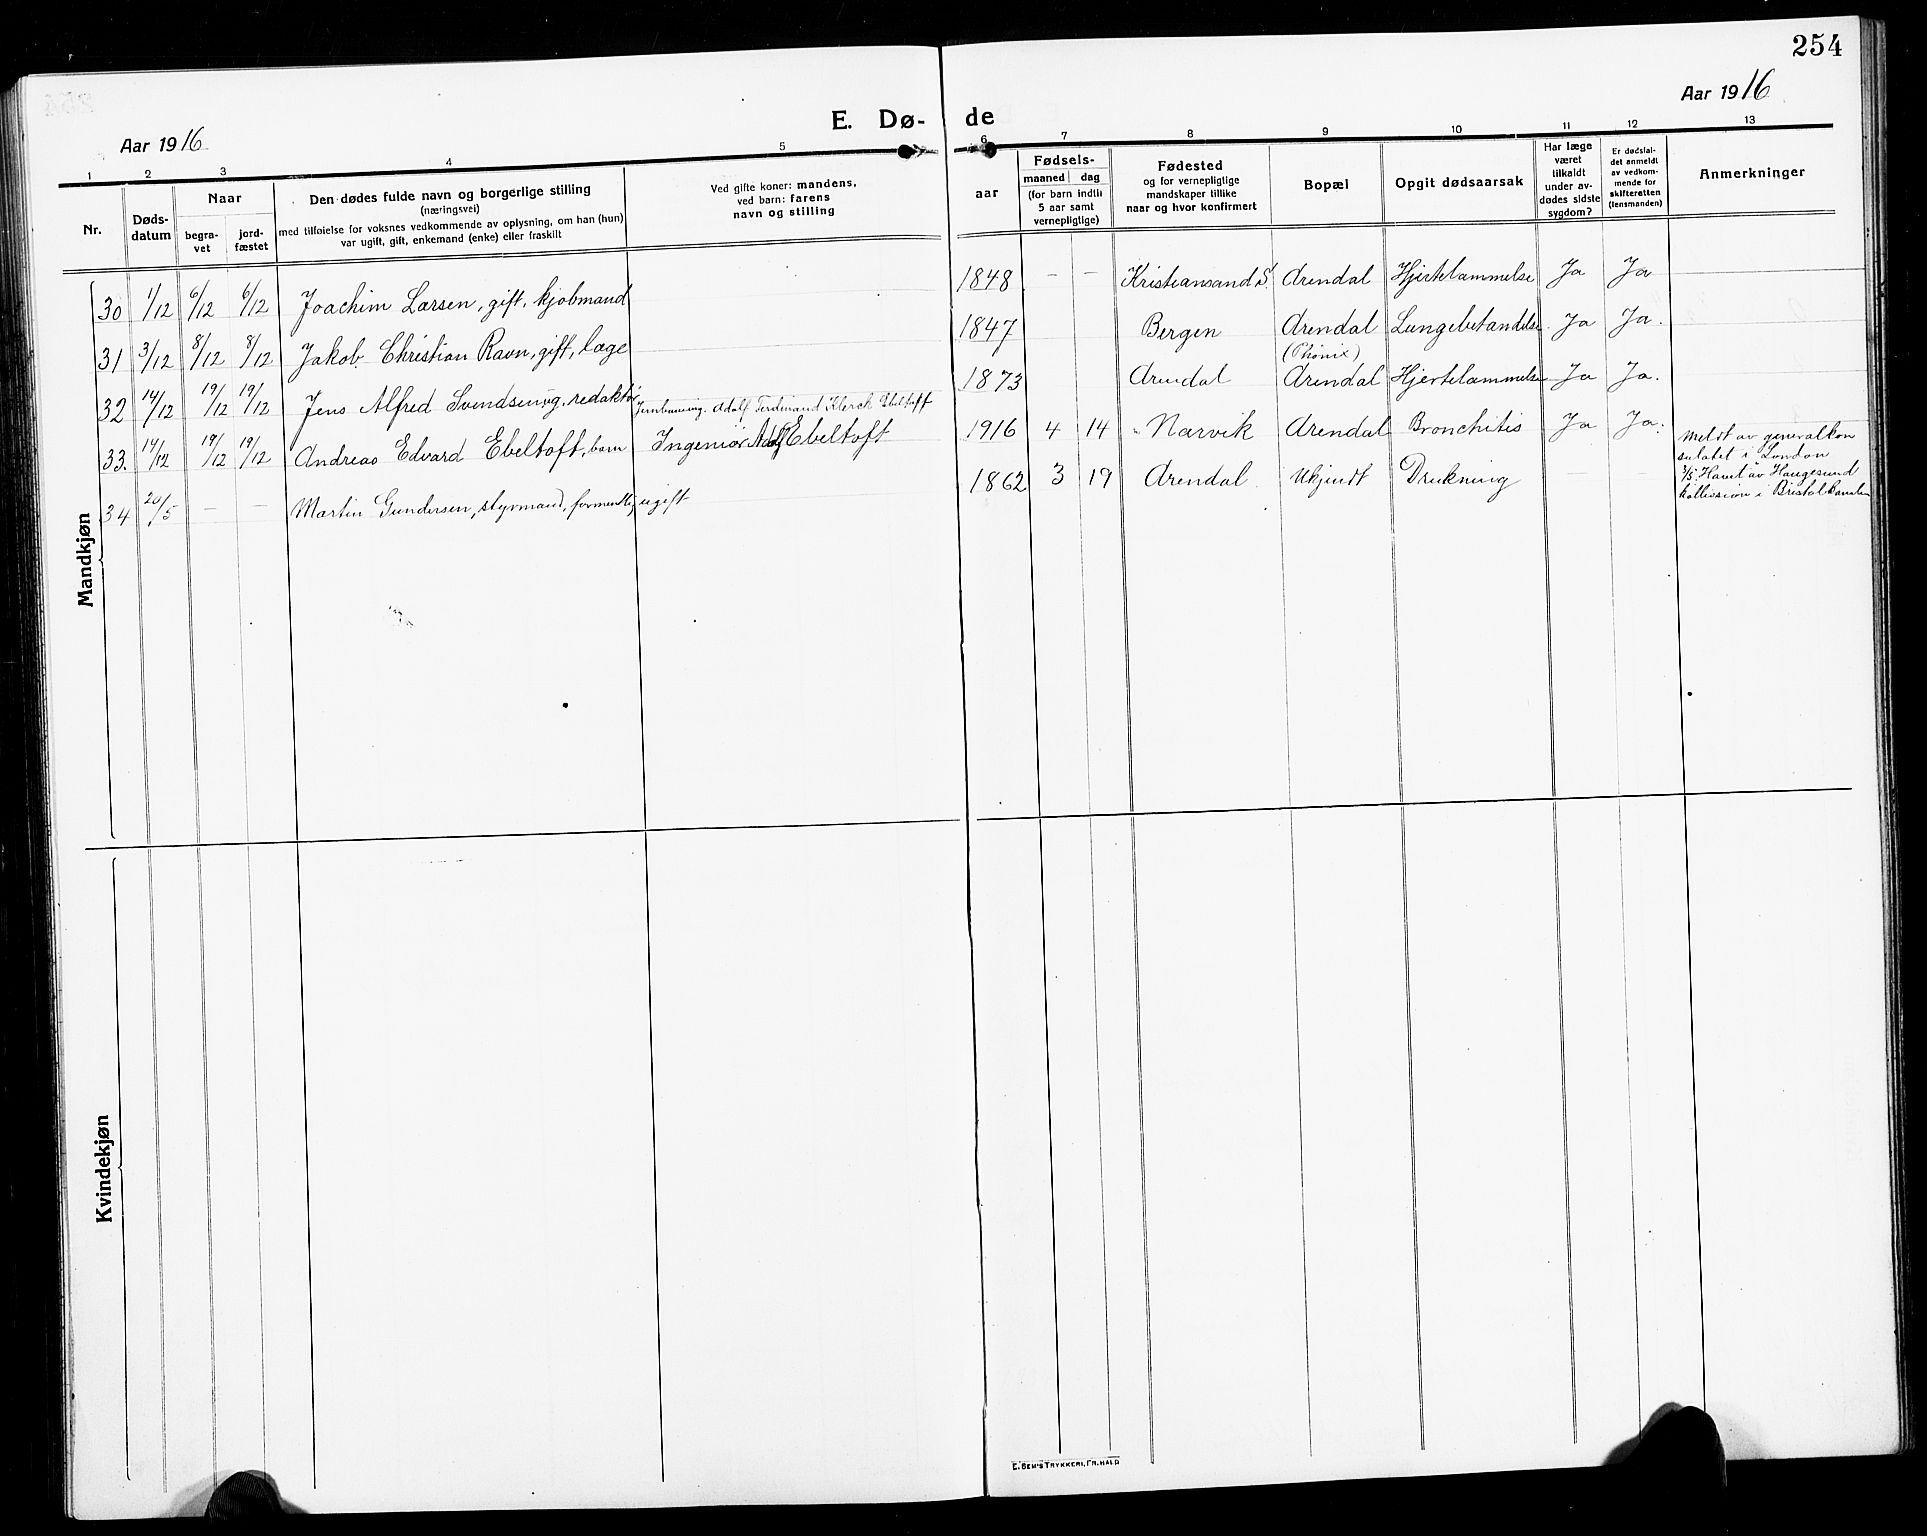 254
Aar 1916
E. Dø-
de
Aar 1916
1
2
3
4
5
6
7
8
9
10
11
12
13
Nr.
Døds-
datum
Naar
begra-
vet
jord-
fæstet
Den dødes fulde navn og borgerlige stilling
(næringsvei)
med tilføielse for voksnes vedkommende av oplysning, om han (hun)
var ugift, gift, enkemand (enke) eller fraskilt
Ved gifte koner: mandens,
ved barn: farens
navn og stilling
aar
Fødsels-
maaned
dag
(for barn indtil
5 aar samt
vernepligtige)
Fødested
og for vernepligtige
mandskaper tillike
naar og hvor konfirmert
Bopæl
Opgit dødsaarsak
Har læge
været
tilkaldt
under av-
dødes sidste
sygdom?
Er dødsfal-
det anmeldt
av vedkom-
mende for
skifteretten
(lensmanden)
Anmerkninger
Mandkjøn
30 1/12 6/12 6/12 Joachim Larsen, gift, kjøbmand 1848 - - Kristiansand S. Arendal Hjertelammelse Ja Ja
31 3/12 8/12 8/12 Jakob Christian Ravn, gift, læge 1847 Bergen Arendal Lungebetændelse Ja Ja.
(Phønix)
32 14/12 19/12 19/12 Jens Alfred Svendsen, ug. redaktør 1873 Arendal Arendal Hjertelammelse Ja Ja.
Adolf Ferdinand Klerck Ebeltoft
33. 14/12 19/12 19/12 Andreas Edvard Ebeltoft, barn Ingeniør Adolf Ebeltoft 1916 4 14 Narvik Arendal Bronchitis Ja Ja.
34 20/5 - - Martin Gundersen, styrmand, formentlig ugift 1862 3 19 Arendal Ukjendt Drukning - -
Meldt av generalkon
sulatet i London
Havet av Haugesund
kollission i Bristolkanalen
Kvindekjøn
E. SEM'S TRYKKERI, FR.HALD